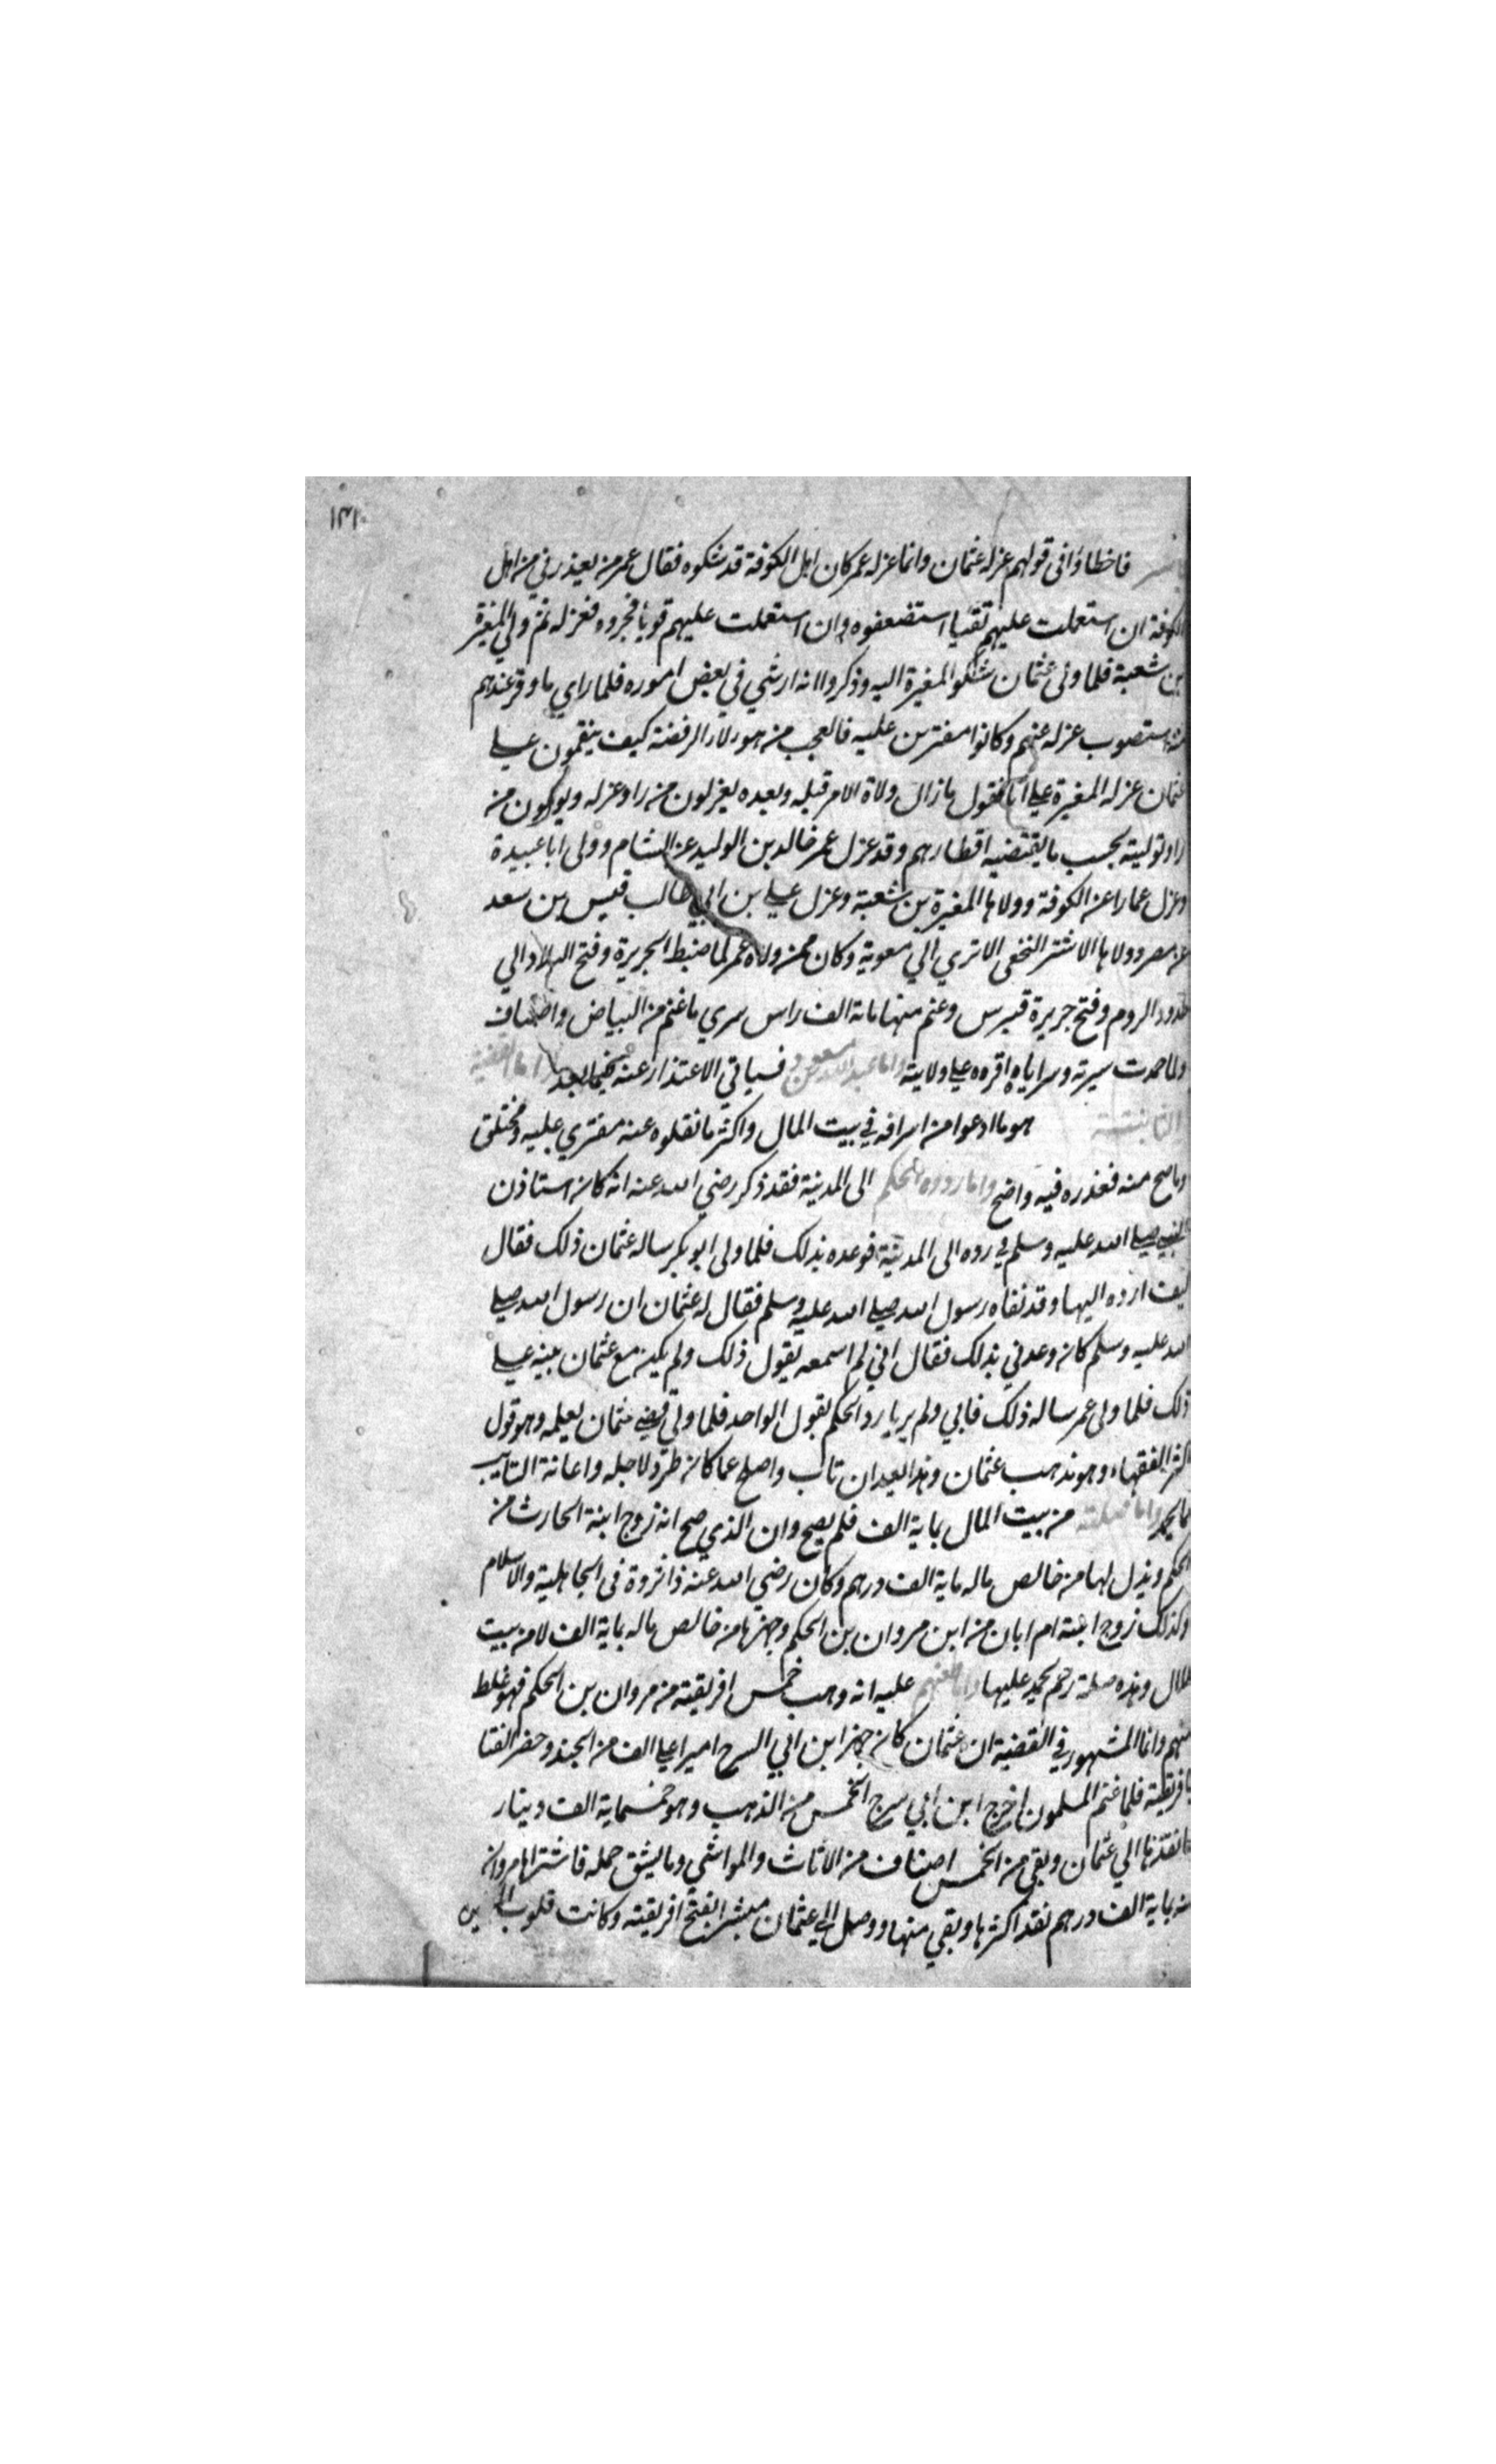 ١٣١
فاخطاؤا في قولهم عزله عثمان وانما عزله عمر كان اهل الكوفة قد شكوه فقال عمر من يعذرني من اهل
الكوفة ان استعملت عليهم تقيا استضعفوه وان استعملت عليهم قويا فجروه فعزله ثم ولي المغيرة
بن شعبة فلما ولى عثمان شكوا المغيرة اليه وذكروا انه ارتشي في بعض اموره فلما راي ما وقر عندهم
منه استصوب عزله عنهم وكانوا مفترين عليه فالعجب من هولاء الرفضة كيف ينقمون علي
عثمان عزله المغيرة علي انا نقول ما زال ولاة الامر قبله وبعده يعزلون من راو عزله ويولون من
راو توليته بحسب ما يقتضيه اقطارهم وقد عزل عمر خالد بن الوليد عن الشام وولى ابا عبيدة
وعزل عمارا عن الكوفة وولاها المغيرة بن شعبة وعزل علي بن ابي طالب قيس بن سعد
عن مصر وولاها الاشتر النخعي الا تري الي معوية وكان ممن ولاه عمر لما ضبط الجزيرة وفتح البلاد الي
حدود الروم وفتح جزيرة قبرس وغنم منها ماية الف راس سري ما غنم من البياض واصناف
ولما حمدت سيرته وسراياه اقره علي ولايته واما عبد الله بن مسعود فسياتي الاعتذار عنه فيما بعد واما القضية
الثانية هو ما ادعوا من اسرافه في بيت المال واكثر ما نقلوه عنه مفتري عليه ومختلق
وما صح منه فعذره فيه واضح واما رده الحكم الى المدينة فقد ذكر رضي الله عنه انه كان استاذن
النبي صلى الله عليه وسلم في رده الى المدينة فوعده بذلك فلما ولى ابو بكر ساله عثمان ذلك فقال
كيف ارده اليها وقد نفاه رسول الله صلى الله عليه وسلم فقال له عثمان ان رسول الله صلى
الله عليه وسلم كان وعدني بذلك فقال اني لم اسمعه يقول ذلك ولم يكن مع عثمان بينه علي
ذلك فلما ولى عمر ساله ذلك فابي ولم يريا رد الحكم بقول الواحد فلما ولي قضي عثمان بعلمه وهو قول
اكثر الفقهاء وهو مذهب عثمان وهذا بعد ان تاب واصلح عما كان طرد لاجله واعانة التايب
مما يحمد واما صلته من بيت المال بماية الف فلم يصح وان الذي صح انه زوج ابنة الحارث من
الحكم وبذل لها من خالص ماله ماية الف درهم وكان رضي الله عنه ذا ثروة في الجاهلية والاسلام
وكذلك زوج ابنته ام ابان من ابن مروان بن الحكم وجهزها من خالص ماله بماية الف لا من بيت
المال وهذه صلة رحم يحمد عليها واما طعنهم عليه انه وهب خمس افريقية من مروان بن الحكم فهو غلط
منهم وانما المشهور في القضية ان عثمان كان جهز ابن ابي السرح اميرا علي الف من الجند وحضر القتا
بافريقية فلما غنم المسلمون اخرج ابن ابي سرح الخمس من الذهب وهو خمسماية الف دينار
فانفذها الي عثمان وبقي من الخمس اصناف من الاثاث والمواشي وما يشق حمله فاشتراها مروان
منه بماية الف درهم نقد اكثرها وبقي منها ووصل الي عثمان مبشرا بفتح افريقية وكانت قلوب